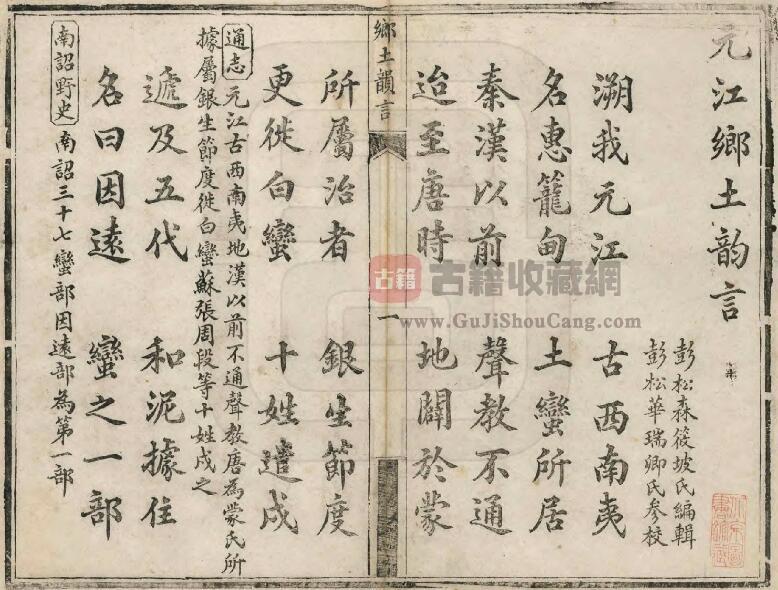 元江鄉土韵言
彭松森筱坡氏編輯
彭松華瑞卿氏參校
溯我元江 古西南夷
名惠籠甸 土蠻所居
秦漢以前 聲教不通
迨至唐時 地闢於蒙
鄉土韻言
一
所屬治者 銀生節度
更徙白蠻 十姓遣戍
通志 元江古西南夷地漢以前不通聲教唐為蒙氏所
據屬銀生節度徙白蠻蘇張周段等十姓戍之
遞及五代 和泥據住
名曰因遠 蠻之一部
南詔野史 南詔三十七蠻部因遠部為第一部
古籍 古籍收藏網
www.GuJiShouCang.com